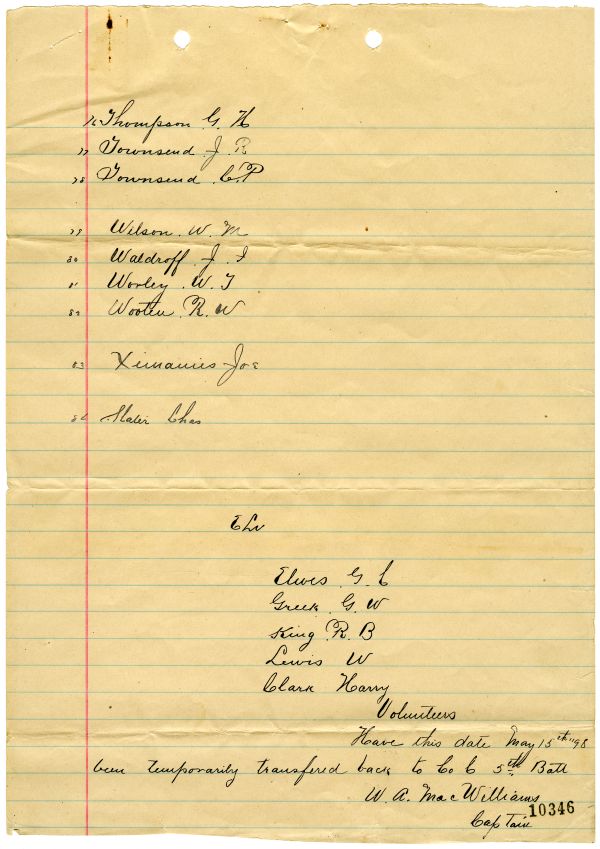 76 Thompson G. H
77 Townsend J. R
78 Townsend C. P
79 Wilson. W. M
80 Waldroff. J. I
81 Worley. W. T
82 Wooten R. W
83 Ximanies Joe
84 Slater Chas
Elw
Elwes G. C
Greek G. W
King R. B
Lewis W
Clark Harry
Volunteers
Have this date May 15th "98
been temporarily transfered back to Co C 5th Batt
W. A. MacWilliams
10346
Captain